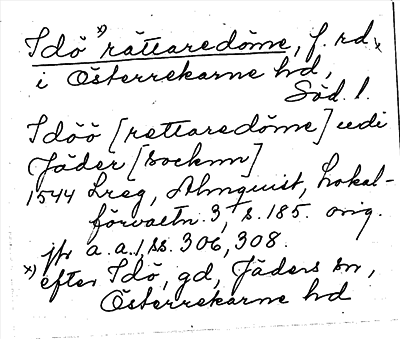 Idö *) rättaredöme, f. rd,
i Österrekarne hd,
Söd. l.
Idöö [rettaredöme] udi
Jäder [socknn]
1544 Lreg, Almquist, Lokal-
förvaltn. 3, s. 185. orig.
jfr a.a. 1, ss. 306, 308.
*) efter Idö, gd, Jäders sn,
Österrekarne hd